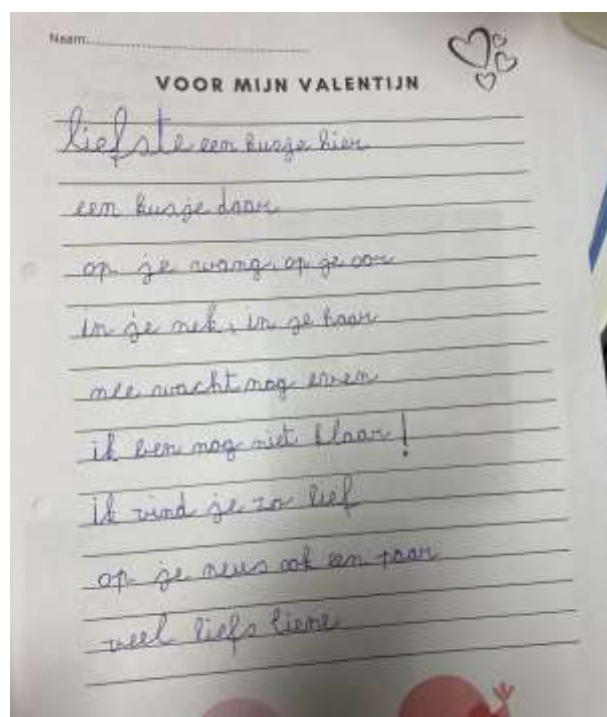 Naam:
VOOR MIJN VALENTIJN
liefste een kusje hier
een kusje daar
op je wang, op je oor
in je nek, in je haar
nee wacht nog even
ik ben nog niet klaar!
ik vind je zo lief
op je neus ook een paar
veel liefs Liene